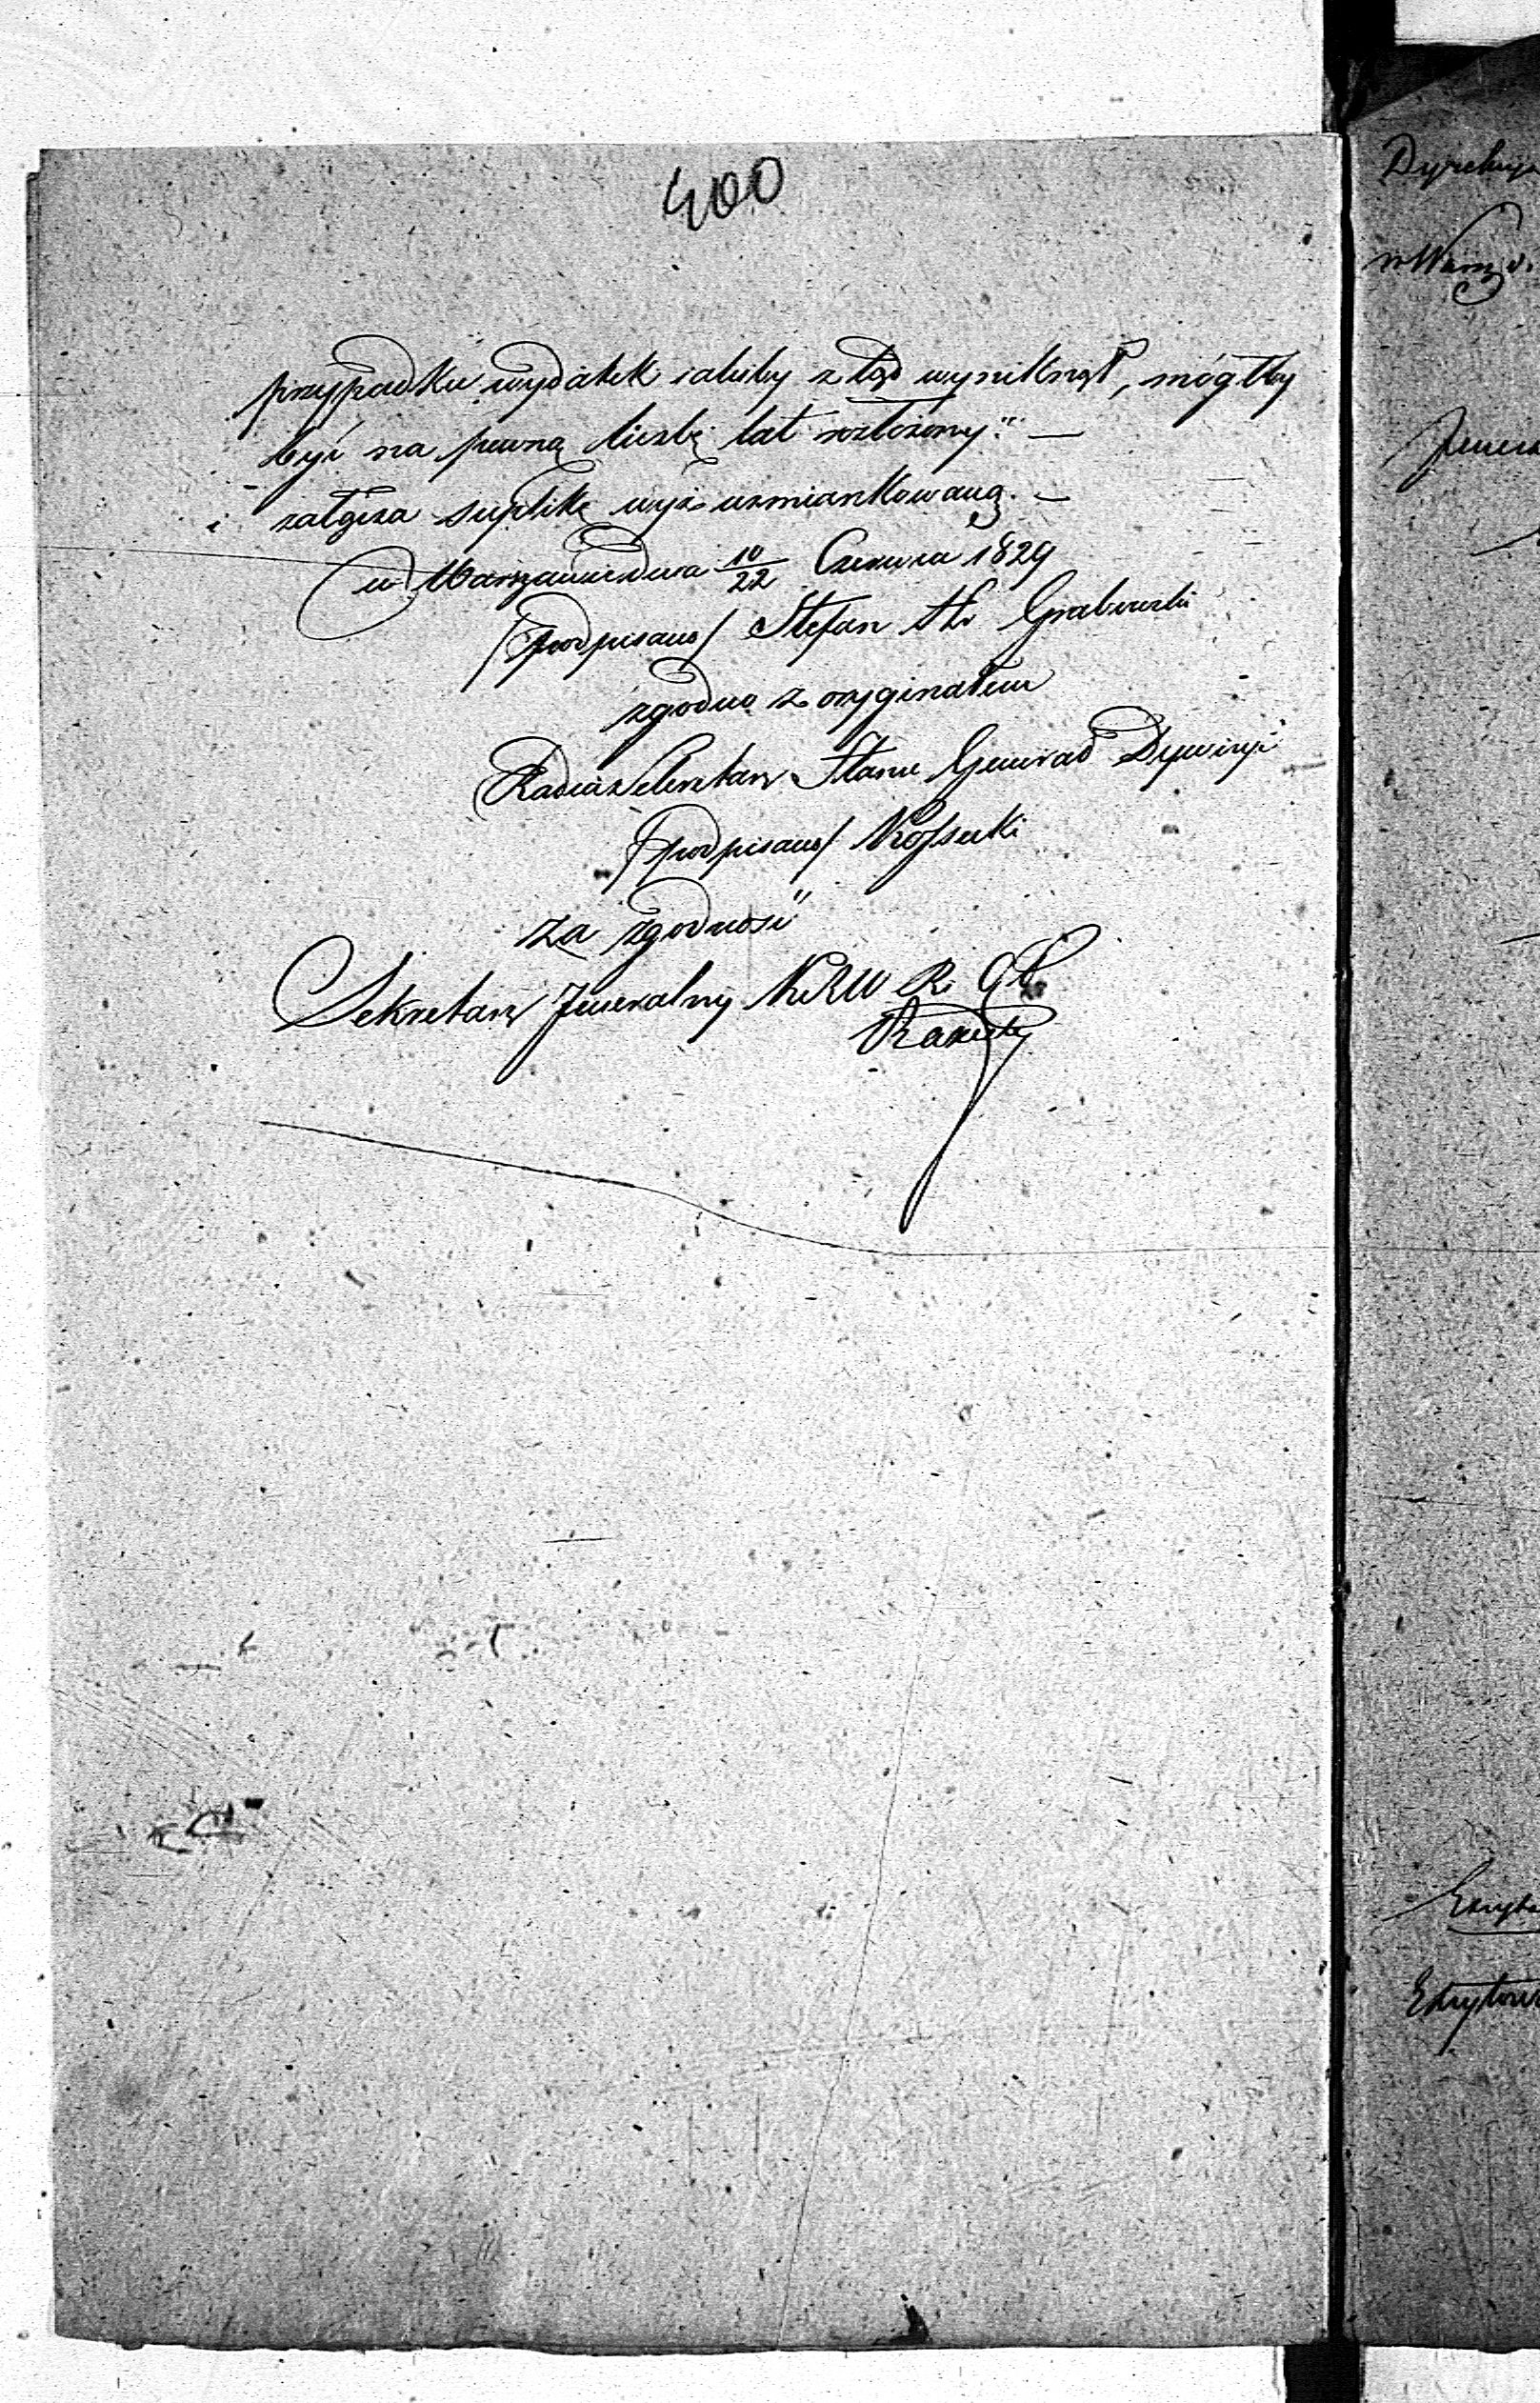 400
przypadku wydatek iakiby ztąd wyniknął, mógłby
być na pewną liczbę lat rozłożony." —
i załącza suplikę wyż wzmiankowaną. —
w Warszawie dnia 10/22 Czerwca 1829
/podpisano/ Stefan Hr Grabowski
zgodno z oryginałem
Radca Sekretarz Stanu Generał Dywizyi
/podpisano/ Kossecki
za zgodność
Sekretarz Jeneralny K R W R. O P.
Dyrekcya
w Warsz
Jenera